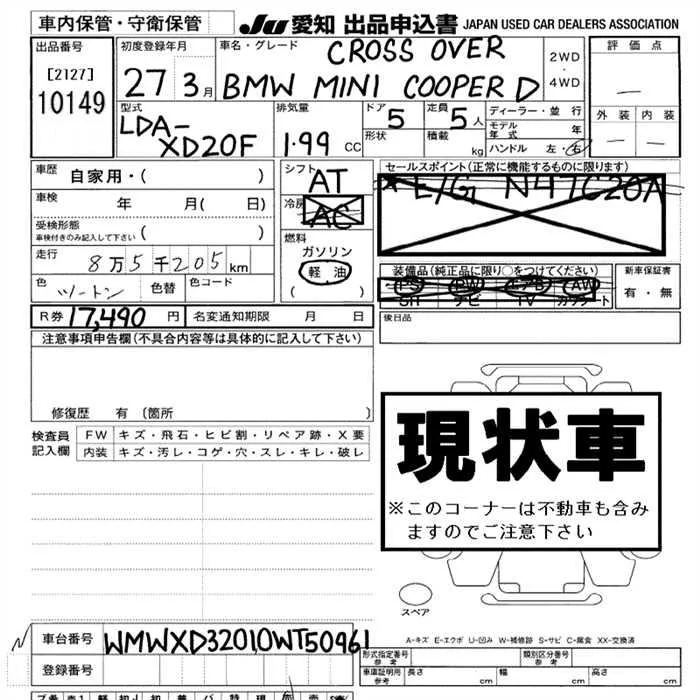 車内保管・守衛保管
JU 愛知 出品申込書 JAPAN USED CAR DEALERS ASSOCIATION
出品番号
[2127]
10149
初度登録年月
27 3月
車名・グレード
CROSS OVER
BMW MINI COOPER D
2WD
・
4WD
評価点
—
外装 内装
— —
型式
LDA-
XD20F
排気量
1.99 CC
ドア 5
形状
定員 5人
積載 kg
ディーラー・並行
モデル年式 年
ハンドル 左・右
車歴
自家用・( )
車検 年 月( 日)
受検形態
車検付きのみ記入して下さい ( )
走行 8万5千205km
色 ツートン 色替 色コード
シフト
AT
冷房
AC
燃料
ガソリン
軽油
( )
セールスポイント(正常に機能するものに限ります)
E/G N47C20A
装備品(純正品に限り○をつけてください)
PS PW エアB AW
SR ナビ TV カワシート
新車保証書
有・無
R券 17,490 円 名変通知期限 月 日
後日品
注意事項申告欄(不具合内容等は具体的に記入して下さい)
修復歴 有 〔箇所 〕
検査員
記入欄
FW キズ・飛石・ヒビ割・リペア跡・X要
内装 キズ・汚レ・コゲ・穴・スレ・キレ・破レ
現状車
※このコーナーは不動車も含み
ますのでご注意下さい
スペア
A-キズ E-エクボ U-凹み W-補修跡 S-サビ C-腐食 XX-交換済
車台番号 WMWXD32010WT50961
登録番号
型式指定番号
参考
類別区分番号
参考
車庫証明用
参考
長さ cm 幅 cm 高さ cm